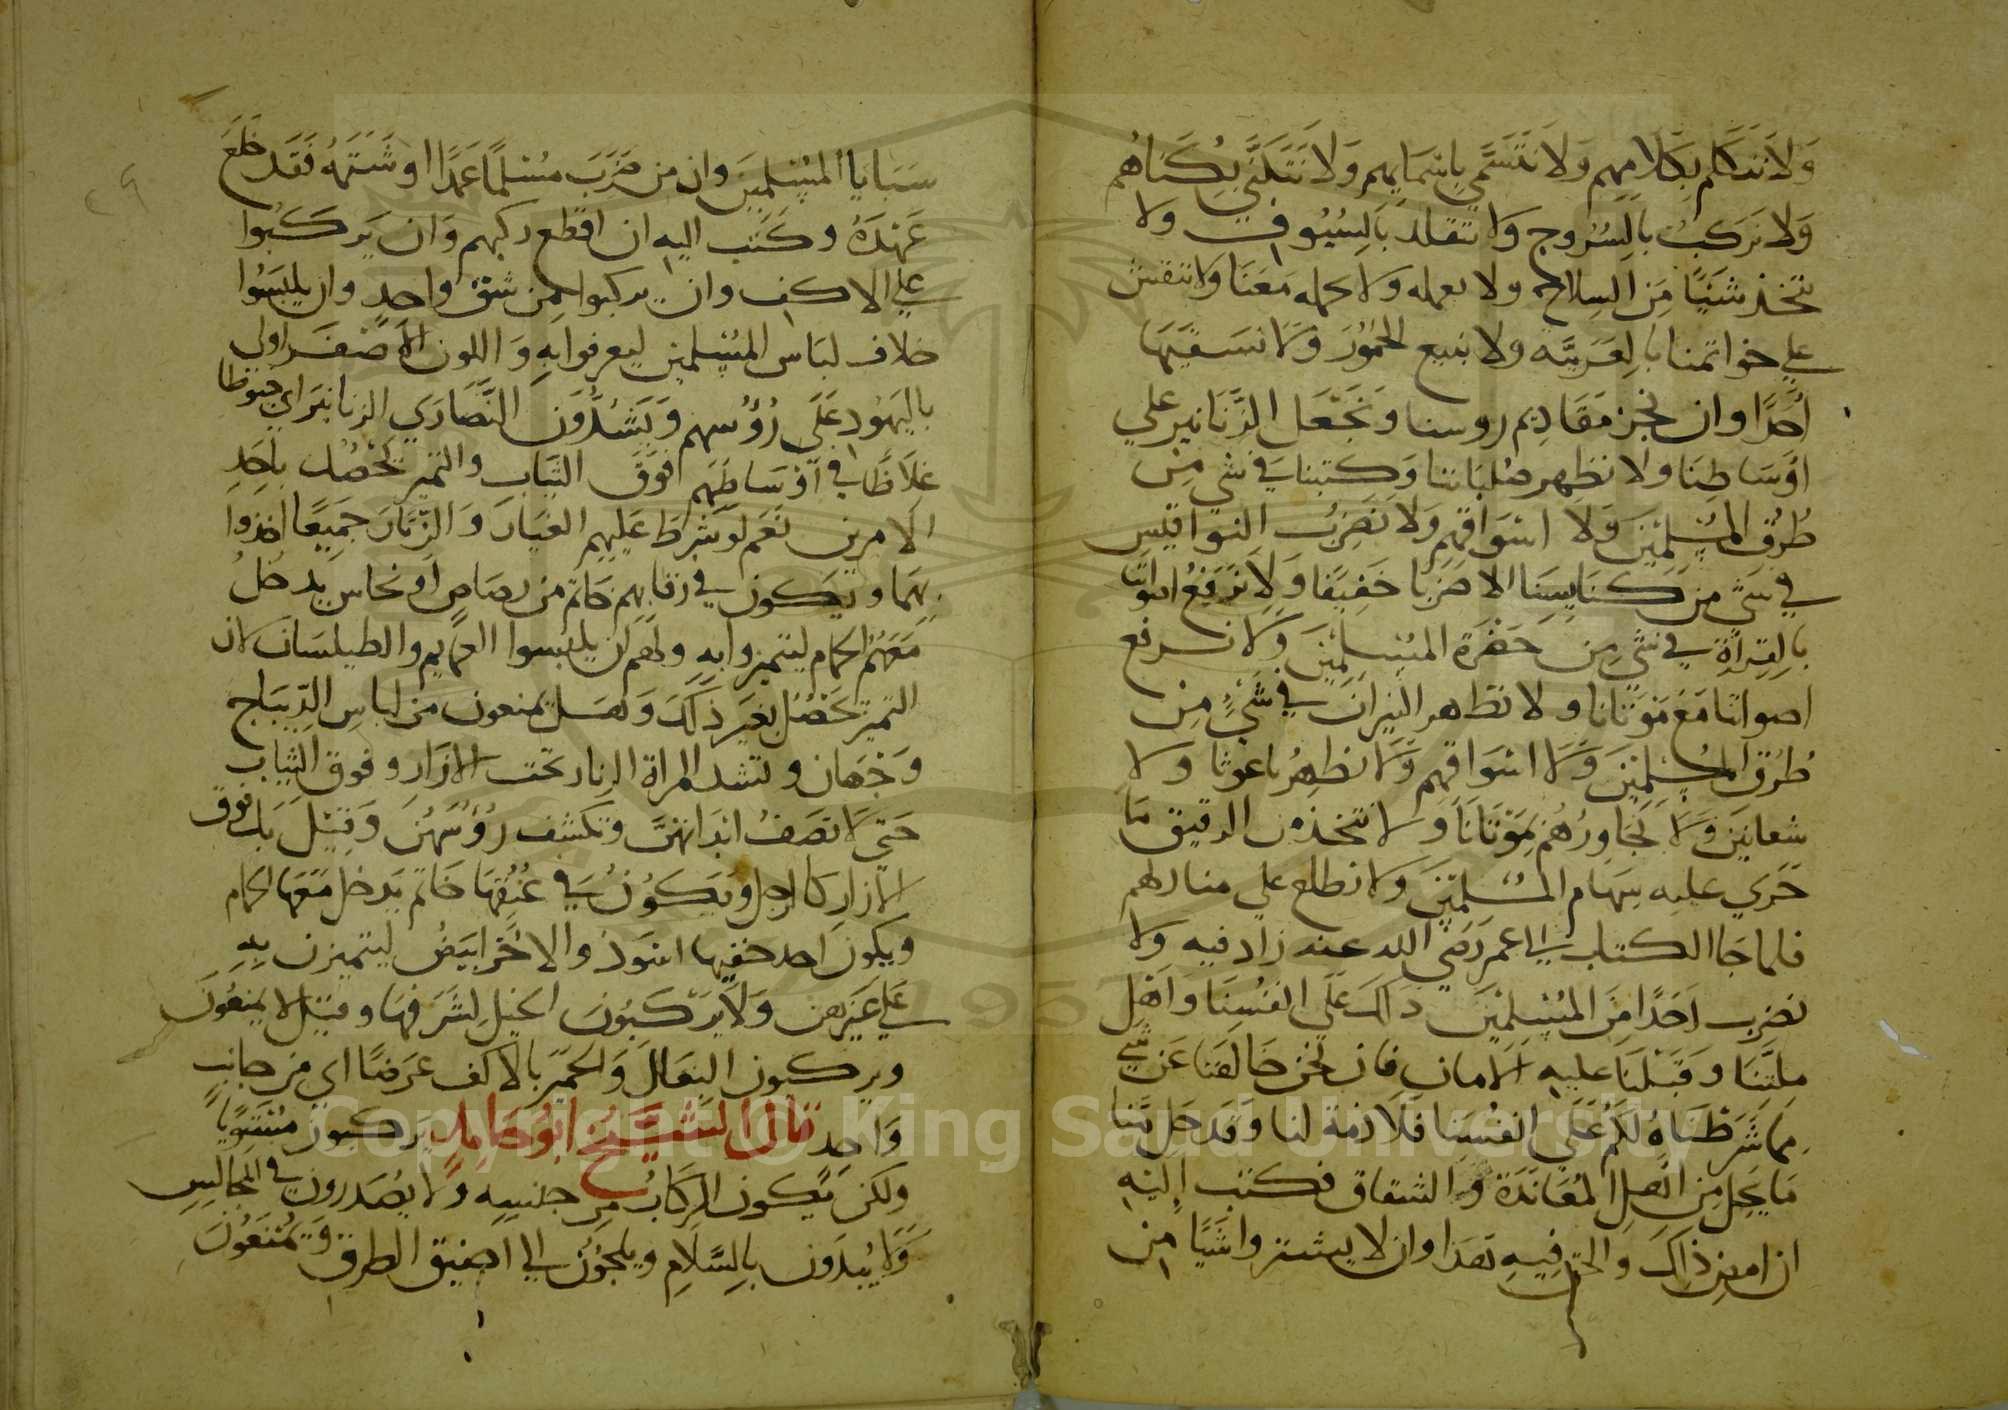 ولا نتكلم بكلامهم ولا نتسمى باسمايهم ولا نتكنى بكناهم
ولا نركب بالسروج ولا نتقلد بالسيوف ولا
نتخذ شيئا من السلاح ولا نعمله ولا نحمله معنا ولا ننقش
على خواتمنا بالعربية ولا نبيع الخمور ولا نسقيها
احدا وان نجز مقاديم روسنا ونجعل الزنانير على
اوساطنا ولا نظهر صلباننا وكتبنا في شي من
طرق المسلمين ولا اسواقهم ولا نضرب النواقيس
في شي من كنايسنا الا ضربا خفيفا ولا نرفع اصواتنا
بالقراة في شي من حضرة المسلمين ولا نرفع
اصواتنا مع موتانا ولا نظهر النيران في شي من
طرق المسلمين ولا اسواقهم ولا نظهر باعوثا ولا
شعانين ولا نجاورهم بموتانا ولا نتخذ من الرقيق ما
جرى عليه سهام المسلمين ولا نطلع على منازلهم
فلما جا الكتاب الى عمر رضي الله عنه زاد فيه ولا
نضرب احدا من المسلمين ذلك على انفسنا واهل
ملتنا وقبلنا عليه الامان فان نحن خالفنا عن شي
مما شرطناه لكم على انفسنا فلا ذمة لنا وقد حل بنا
ما يحل من اهل المعاندة والشقاق فكتب اليه
ان امض ذلك والحق فيه هذا وان لا يشتروا شيا من
سبايا المسلمين وان من ضرب مسلما عمدا او شتمه فقد خلع
عهده وكتب اليه ان اقطع ركبهم وان يركبوا
على الاكف وان يركبوا من شق واحد وان يلبسوا
خلاف لباس المسلمين ليعرفوا به واللون الاصفر اولى
باليهود على رؤسهم ويشدون النصارى الزنانير اي خيوطا
غلاظا في اوساطهم فوق الثياب والتميز يحصل باحد
الامرين نعم لو شرط عليهم الغيار والزنار جميعا اخذوا
بهما ويكون في رقابهم خاتم من رصاص او نحاس يدخل
معهم الحمام ليتميزوا به ولهم ان يلبسوا العمايم والطيلسان لان
التميز يحصل بغير ذلك وهل يمنعون من لباس الديباج
وجهان وتشد المراة الزنار تحت الازار وفوق الثياب
حتى لا تصف ابدانهن وتكشف رؤسهن وقيل بل فوق
الازار كالرجل ويكون في عنقها خاتم يدخل معها الحمام
ويكون احد خفيها اسود والاخر ابيض ليتميزن به
على غيرهن ولا يركبون الخيل لشرفها وقيل لا يمنعون
ويركبون البغال والحمير بالاكف عرضا اي من جانب
واحد قال الشيخ ابو حامد يركبون مستويا
ولكن يكون الركاب من جنسه ولا يصدرون في المجالس
ولا يبدون بالسلام ويلجون الى اضيق الطرق ويمنعون